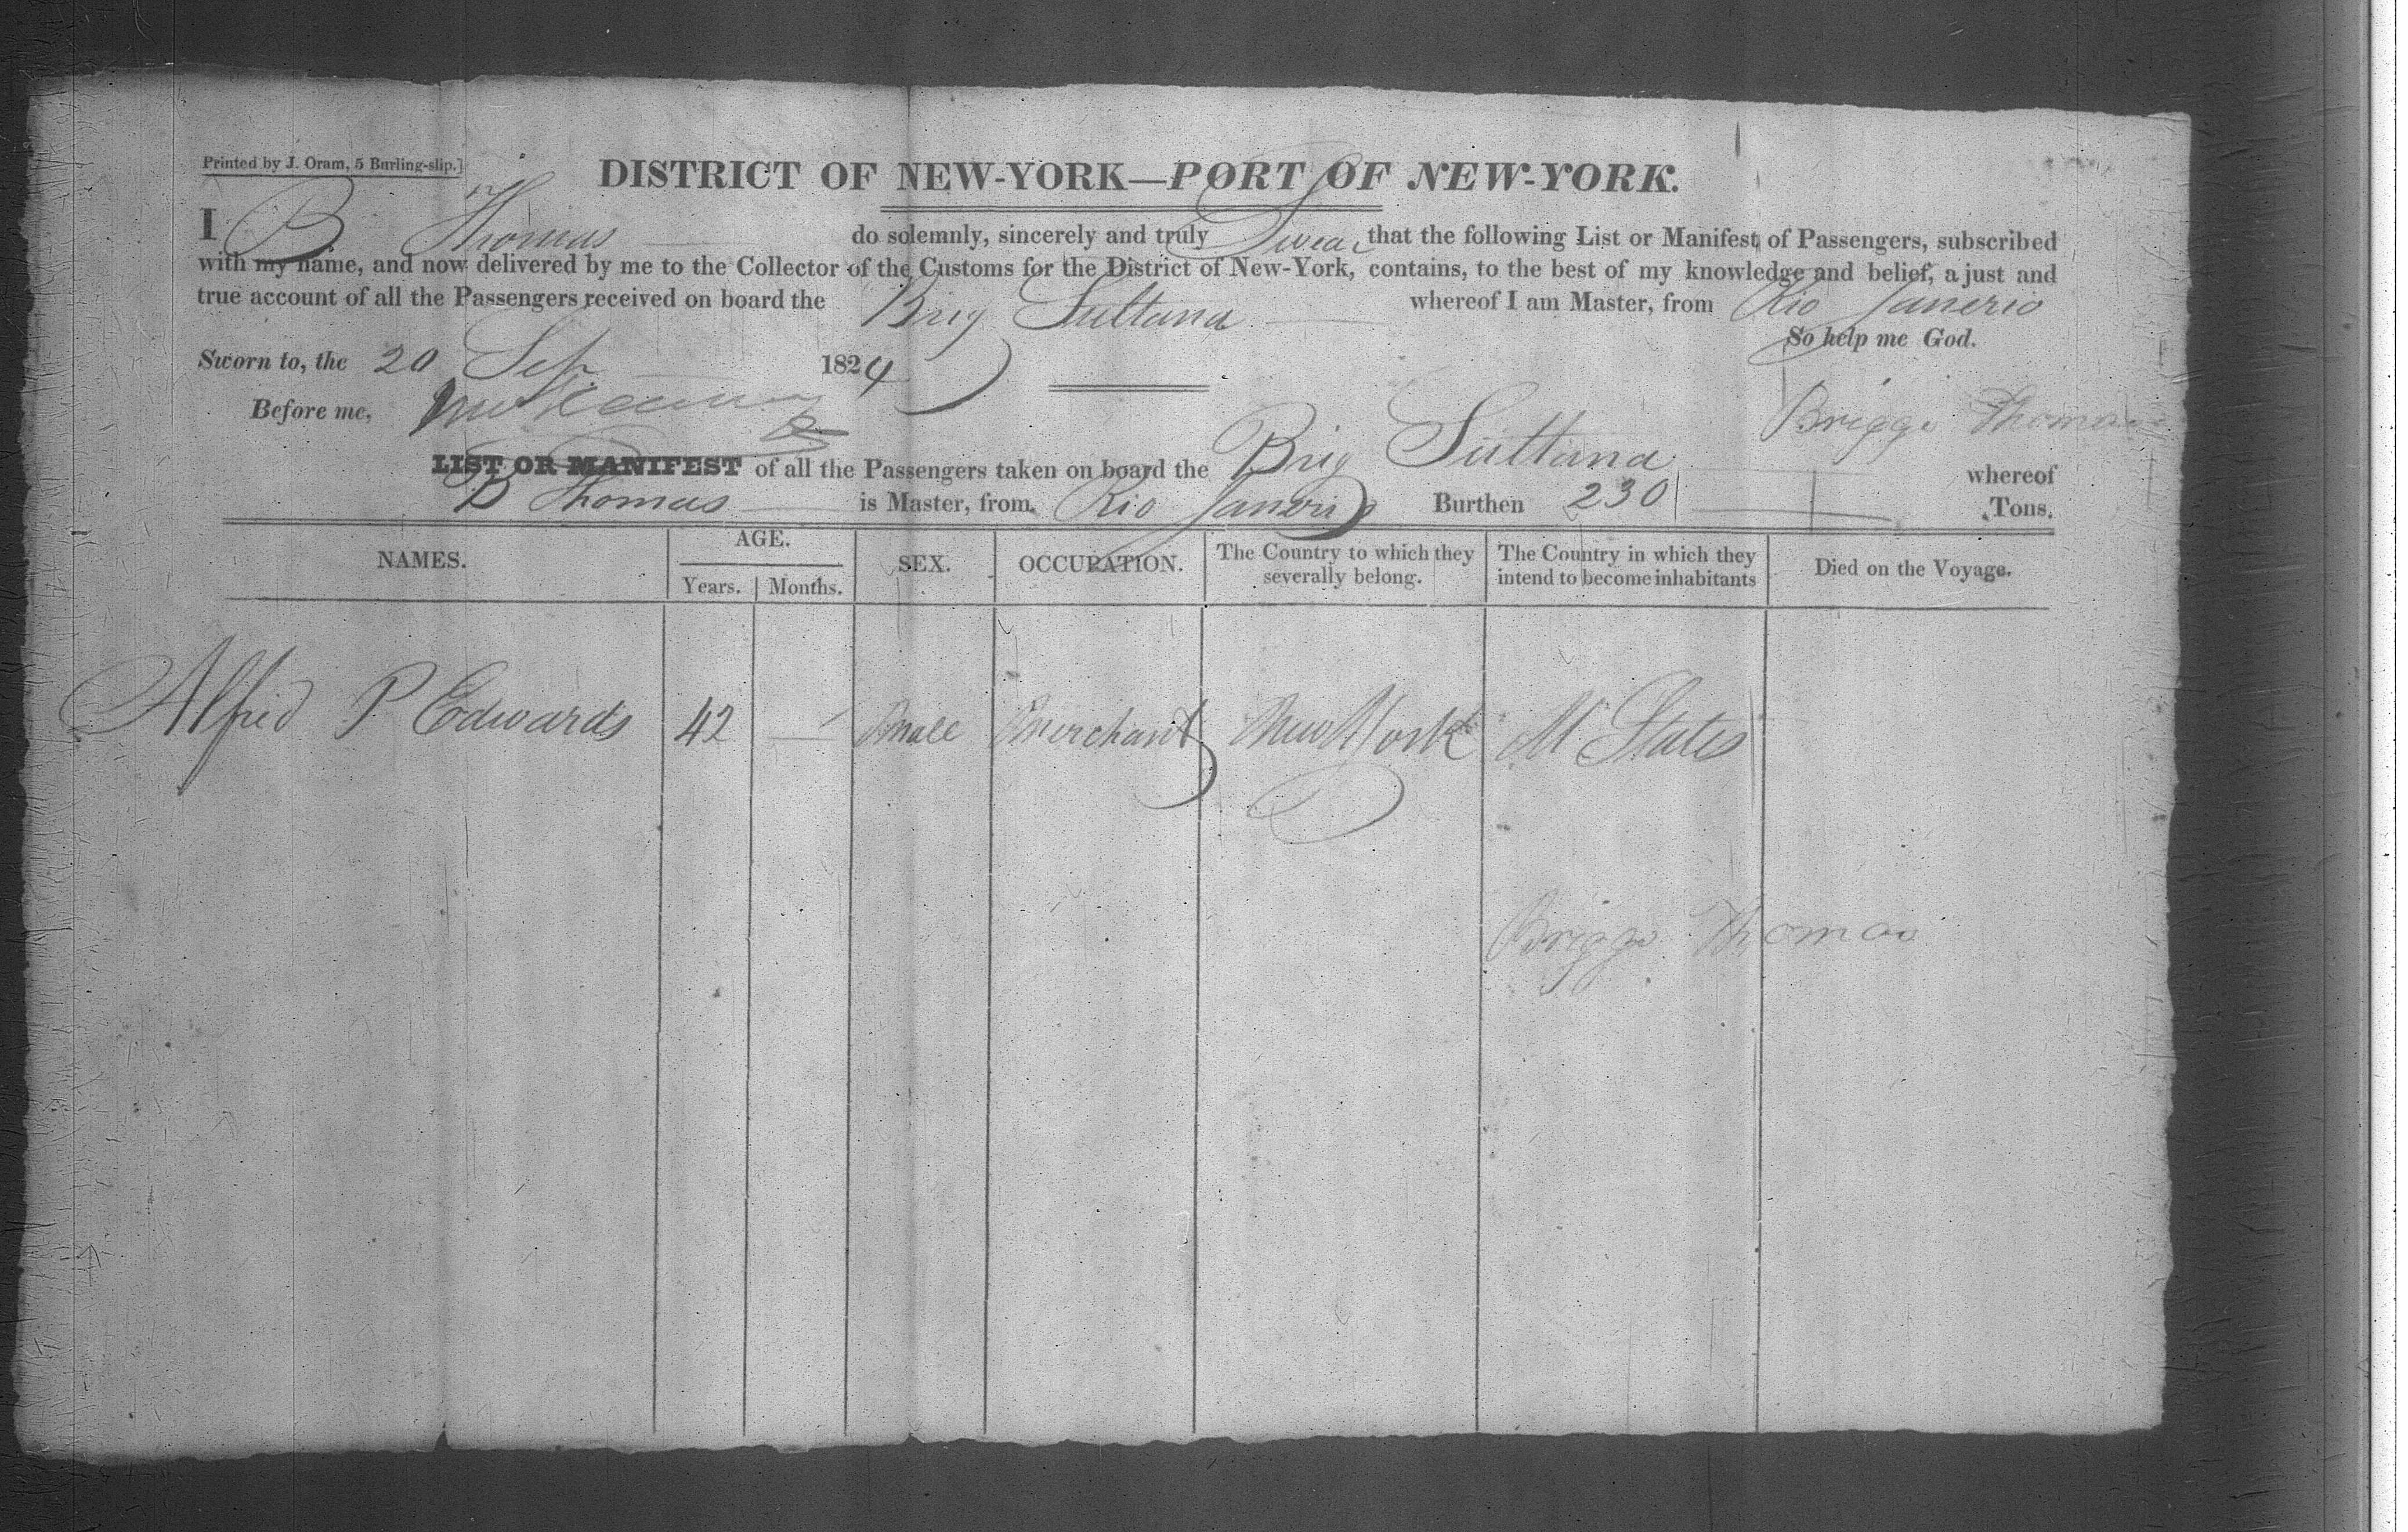 Printed by J. Oram, 5 Burling-slip.]
DISTRICT OF NEW-YORK—PORT OF NEW-YORK.
I B Thomas do solemnly, sincerely and truly Swear that the following List or Manifest of Passengers, subscribed
with my name, and now delivered by me to the Collector of the Customs for the District of New-York, contains, to the best of my knowledge and belief, a just and
true account of all the Passengers received on board the Brig Sultana whereof I am Master, from Rio Janerio
So help me God.
Sworn to, the 20 Sep 1824
Before me,
Briggs Thomas
LIST OR MANIFEST of all the Passengers taken on board the Brig Sultana whereof
B Thomas is Master, from Rio Janerio Burthen 230 Tons.
NAMES. AGE. SEX. OCCUPATION. The Country to which they severally belong. The Country in which they intend to become inhabitants Died on the Voyage.
Years. Months.
Alfred P Edwards 42 — Male Merchant New York States
Briggs Thomas